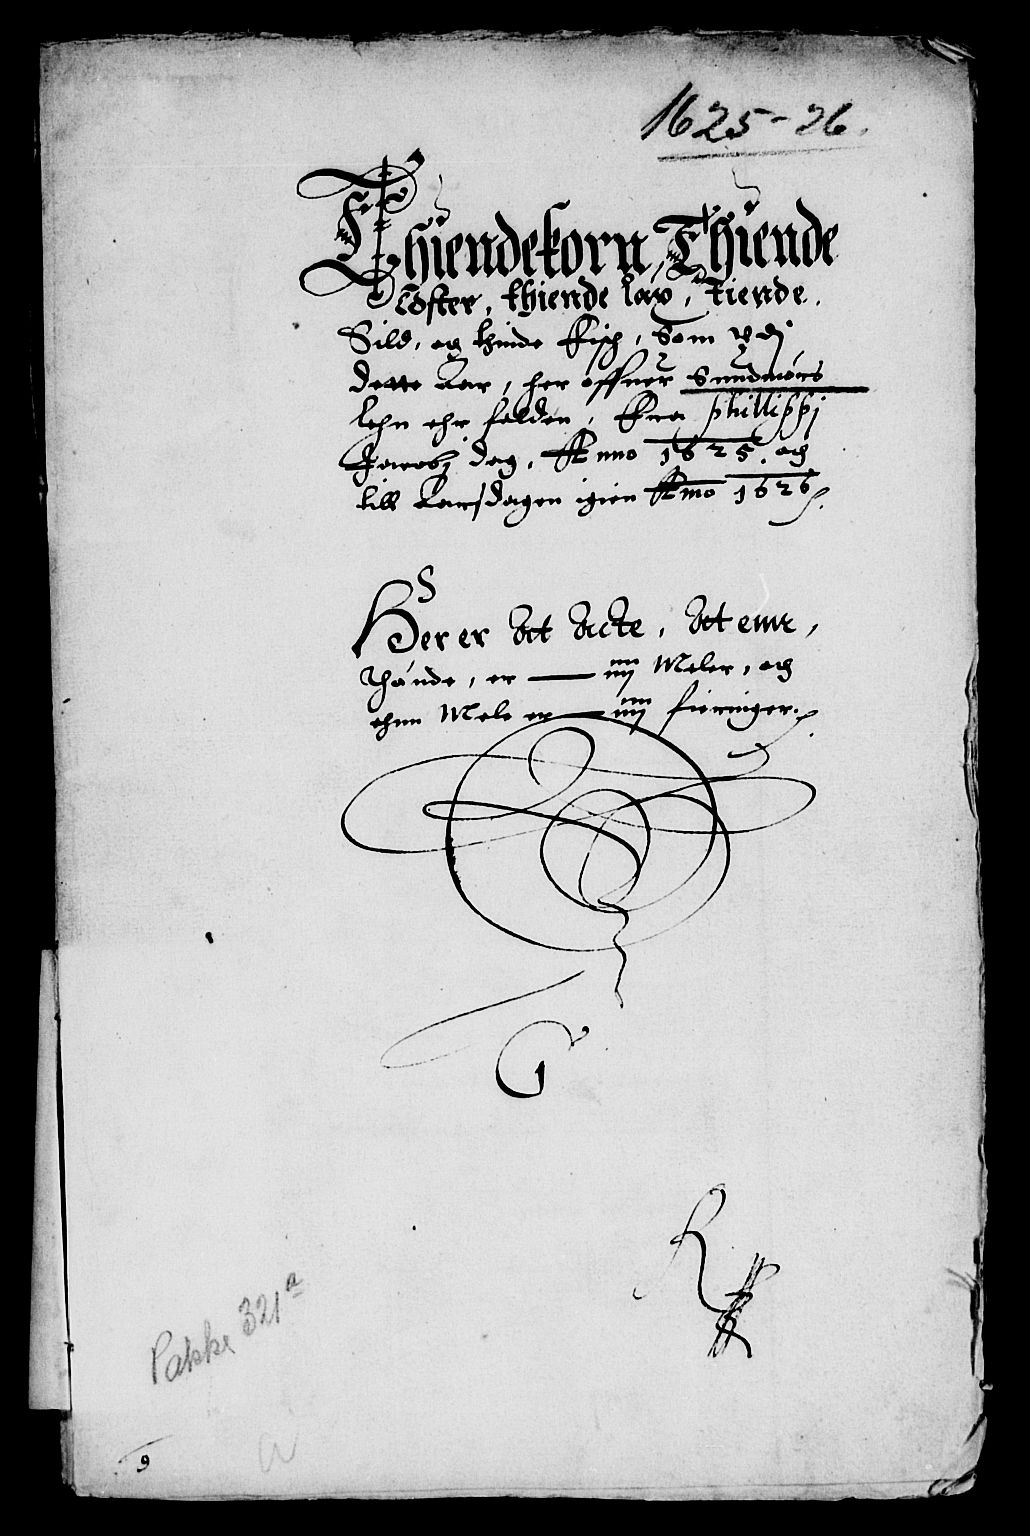 1625-26.
Thiendekorn, Thiende
Tøster, thiende lax, Tiende,
Sild, og thinde Fisch, Som vdj
dette Aar, her offuer Sundmørs
lehn ehr falden, Fra phillippj
Jacobj dag, Anno 1625. og
till Aarsdagen igien Anno 1626.
Her er det Acte, at enn,
Thønde, er — iiij Meler, og
ehnn Mele er — iiij fieringer.
G
Pakke 321a
9